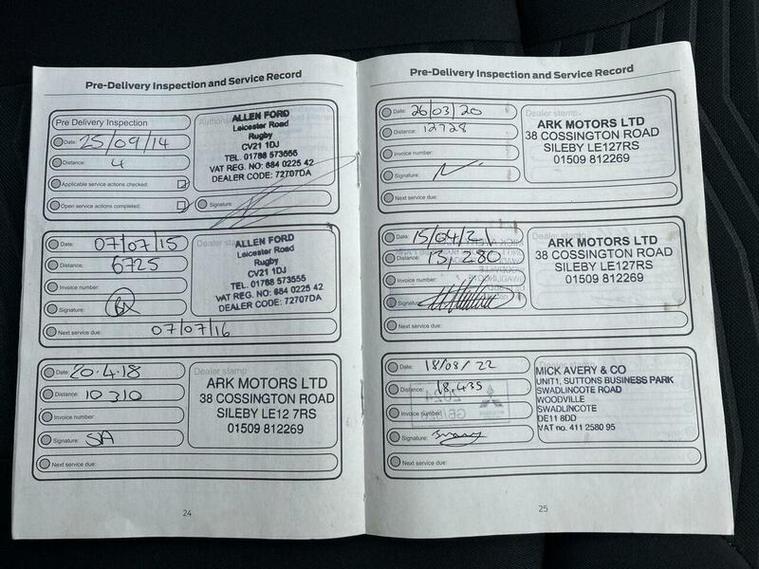 Pre-Delivery Inspection and Service Record
Pre Delivery Inspection
Date: 25/09/14
Distance: 4
Applicable service actions checked:
Open service actions completed:
ALLEN FORD
Leicester Road
Rugby
CV21 1DJ
TEL. 01788 573555
VAT REG. NO: 684 0225 42
DEALER CODE: 72707DA
Signature:
Date: 07/07/15
Distance: 6725
Invoice number:
Signature:
Next service due: 07/07/16
Dealer stamp
ALLEN FORD
Leicester Road
Rugby
CV21 1DJ
TEL. 01788 573555
VAT REG. NO: 684 0225 42
DEALER CODE: 72707DA
Date: 20.4.18
Distance: 10310
Invoice number:
Signature: SA
Next service due:
Dealer stamp
ARK MOTORS LTD
38 COSSINGTON ROAD
SILEBY LE12 7RS
01509 812269
24
Pre-Delivery Inspection and Service Record
Date: 26/03/20
Distance: 12728
Invoice number:
Signature:
Next service due:
Dealer stamp
ARK MOTORS LTD
38 COSSINGTON ROAD
SILEBY LE127RS
01509 812269
Date: 15/04/21
Distance: 13,280
Invoice number:
Signature:
Next service due:
Dealer stamp
ARK MOTORS LTD
38 COSSINGTON ROAD
SILEBY LE127RS
01509 812269
Date: 18/08/22
Distance: 18,435
Invoice number:
Signature:
Next service due:
Dealer stamp
MICK AVERY & CO
UNIT1, SUTTONS BUSINESS PARK
SWADLINCOTE ROAD
WOODVILLE
SWADLINCOTE
DE11 8DD
VAT no. 411 2580 95
25